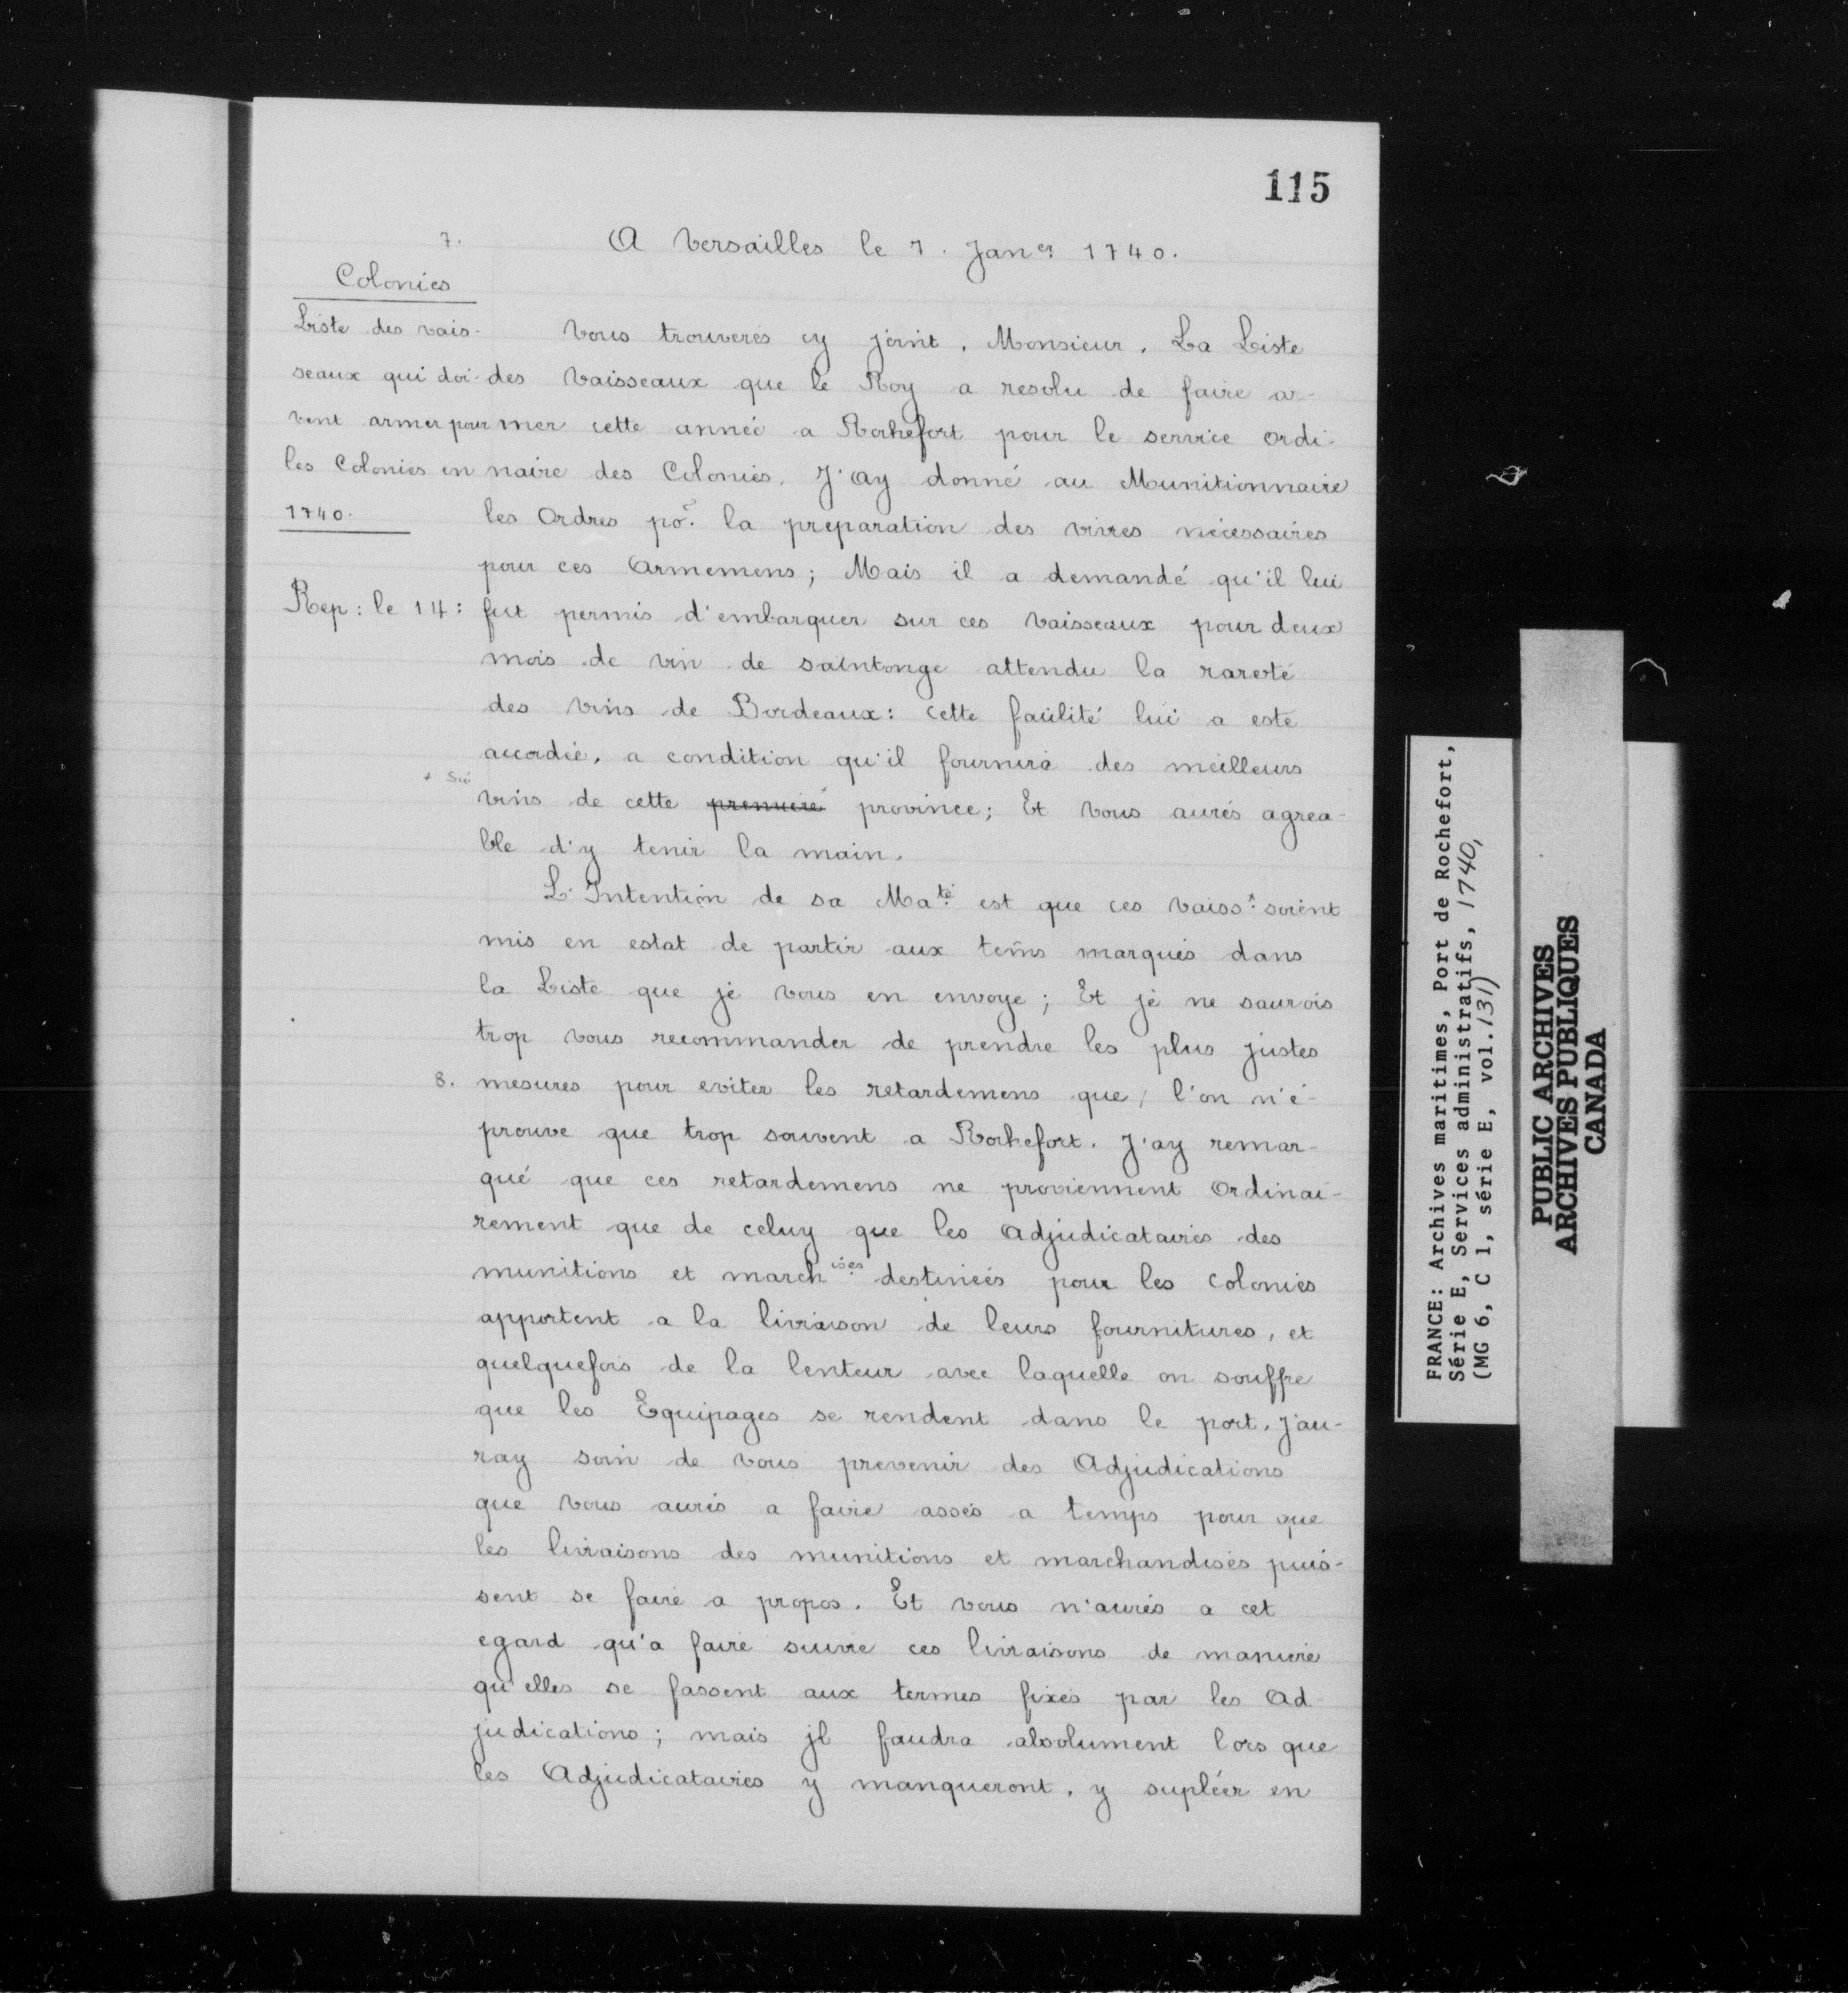 115
7.
A Versailles le 7. Jan.er 1740.
Colonies
Liste des vais-
seaux qui doi-
vent armer pour
les Colonies en
1740.
Rep: le 14:
Vous trouverés cy joint, Monsieur, La Liste
des Vaisseaux que le Roy a resolu de faire ar-
mer cette année a Rochefort pour le service ordi-
naire des Colonies. J'ay donné au Munitionnaire
les Ordres po.r la preparation des vivres nécessaires
pour ces Armemens; Mais il a demandé qu'il lui
fut permis d'embarquer sur ces Vaisseaux pour deux
mois de vin de saintonge attendu la rareté
des vins de Bordeaux: cette facilité lui a esté
accordée, a condition qu'il fournira des meilleurs
vins de cette premiere province; Et vous aurés agrea-
ble d'y tenir la main.
L'Intention de sa Ma.té est que ces vaiss.x soient
mis en estat de partir aux tems marqués dans
la Liste que je vous en envoye; Et je ne saurois
trop vous recommander de prendre les plus justes
8. mesures pour eviter les retardemens que / l'on n'é-
prouve que trop souvent a Rochefort. J'ay remar-
qué que ces retardemens ne proviennent Ordinai-
rement que de celuy que les Adjudicataires des
munitions et march.ises destinées pour les colonies
apportent a la livraison de leurs fournitures, et
quelquefois de la lenteur avec laquelle on souffre
que les Equipages se rendent dans le port. J'au-
ray soin de vous prevenir des Adjudications
que vous aurés a faire assés a temps pour que
les livraisons des munitions et marchandises puis-
sent se faire a propos. Et vous n'aurés a cet
egard qu'a faire suivre ces livraisons de maniere
qu'elles se fassent aux termes fixés par les Ad
judications; mais jl faudra absolument lors que
les Adjudicataires y manqueront, y supléer en
FRANCE: Archives maritimes, Port de Rochefort,
Série E, Services administratifs, 1740,
(MG 6, C 1, série E, vol. 131)
PUBLIC ARCHIVES
ARCHIVES PUBLIQUES
CANADA